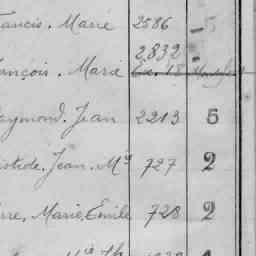 rancis. Marie 2586 - 5
2.832
ançois. Marie
aymond. Jean 2213 5
istide, Jean. Mie 727 2
rre, Marie, Emile 728 2